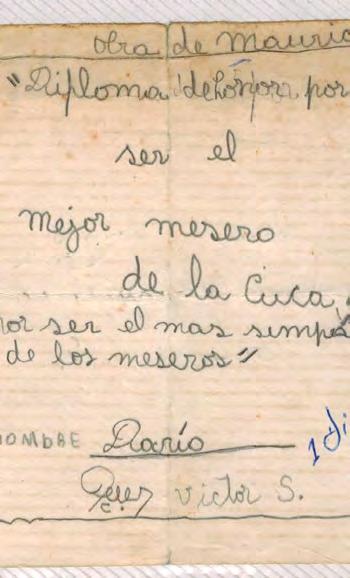 obra de Mauric
"Diploma dehonorr por
ser el
mejor mesero
de la Cuca,
por ser el mas simpá
de los meseros"
NOMBRE Darío
1 di
Victor S.